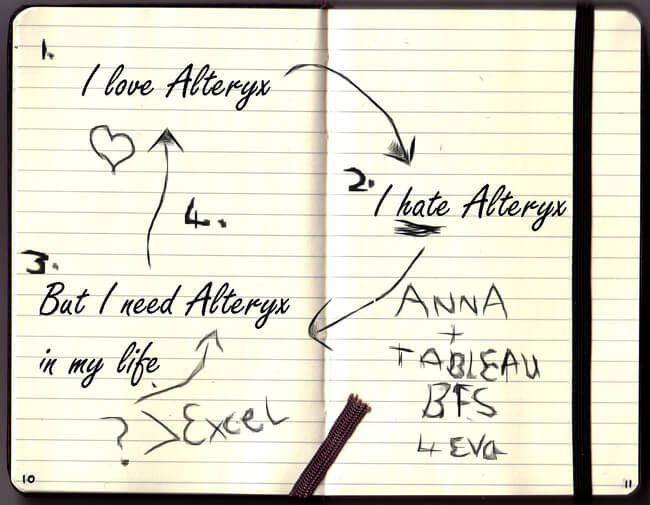 1.
I love Alteryx
4.
3.
But I need Alteryx
in my life
? > Excel
10
2.
I hate Alteryx
ANNA
+
TABLEAU
BFS
4 EVA
11